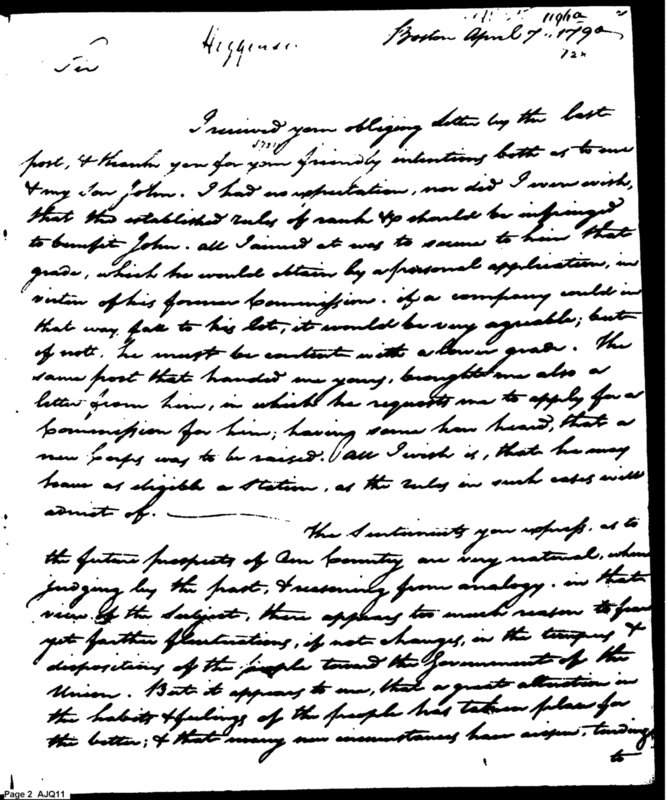 Boston April 7. 1790
Higginson
Sir
I received your obliging Letter by the last
post, & thank you for your friendly intentions both as to me
& my Son John. I had no expectation, nor did I even wish,
that the established rules of rank &c should be infringed
to benefit John. all I aimed at was to secure to him that
grade, which he would obtain by a personal application, in
virtue of his former Commission. if a company could in
that way, fall to his lot, it would be very agreable; but
if not, he must be content with a lower grade. The
same post that handed me yours, brought me also a
letter from him, in which he requests me to apply for a
Commission for him; having some how heard, that a
new Corps was to be raised. All I wish is, that he may
have as eligible a Station, as the rules in such cases will
admit of.
The Sentiments you express, as to
the future prospects of Our Country are very natural, when
judging by the past, & reasoning from analogy. in that
view of the Subject, there appears too much reason to fear
yet farther fluctuations, if not changes, in the tempers &
dispositions of the people toward the Government of the
Union. But it appears to me, that a great alteration in
the habits & feelings of the people has taken place for
the better; & that many new circumstances have arisen, tending
to
Page 2 AJQ11